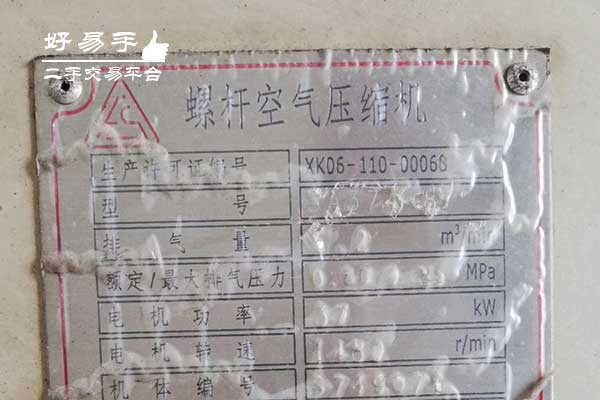 好易手
二手交易平台
螺杆空气压缩机
生产许可证编号 XK06-110-00068
型 号
排 气 量 m³/min
额定/最大排气压力 MPa
电 机 功 率 37 kW
电 机 转 速 r/min
机 体 编 号